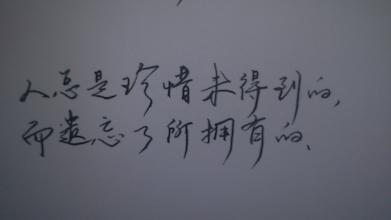 人总是珍惜未得到的,
而遗忘了所拥有的、